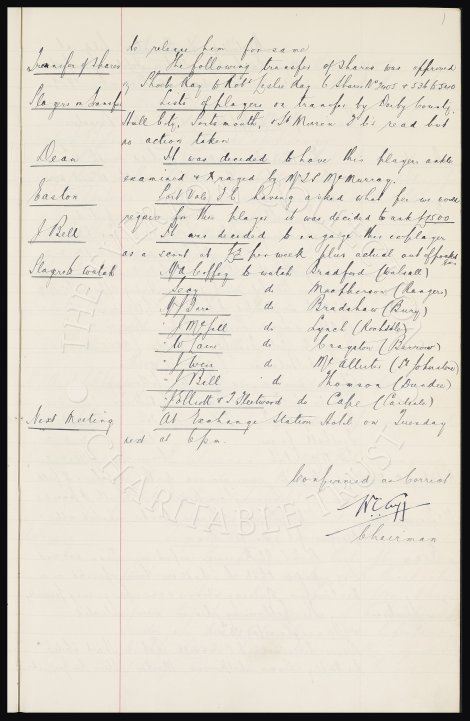 to release him for same
Transfer of Shares The following transfer of shares was approved
Phoebe Kay to Robt Leslie Kay 6 Shares Nos
Players on Transfer Lists of players on transfer by Derby County,
Hull City, Portsmouth, & St Mirren F C's read but
no action taken
Dean It was decided to have this players ankle
examined & Xrayed by Mr McMurray.
Easton Port Vale F.C. having asked what fee we would
require for this player it was decided to ask £1500
J Bell It was decided to engage this explayer
as a scout at £3 per week plus actual out of pocket exps
Players to watch Mr A Coffey to watch Bradford (Walsall)
do Macpherson (Rangers)
do Bradshaw (Bury)
" J McGill do Lynch (Rochdale)
" W Cain do Craqston (Barrow)
" J Weir do McAllister (St Johnstone)
" J Bell do Thomson (Dundee)
" J Elliott & T Fleetwood do Cape (Carlisle)
Next Meeting At Exchange Station Hotel on Tuesday
next at 6 pm.
Confirmed as Correct
W.C. Cuff
Chairman
CHARITABLE TRUST